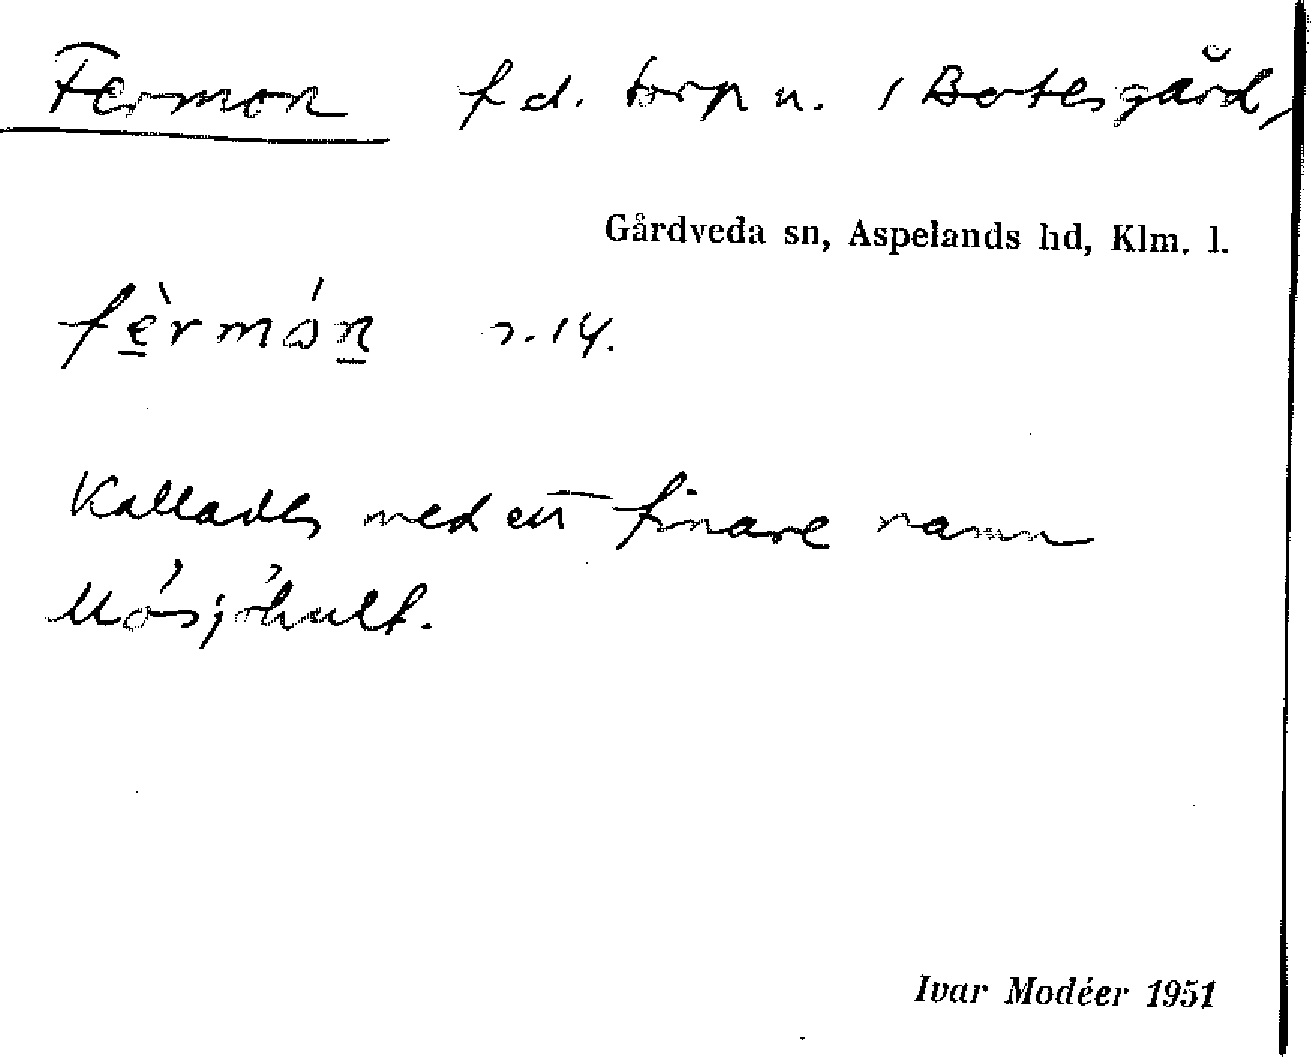 Fermon f d. torp u. / Botesgård,
Gårdveda sn, Aspelands hd, Klm. l.
fèrmón 14.
Kallades med ett finare namn
Mósjöhult.
Ivar Modéer 1951